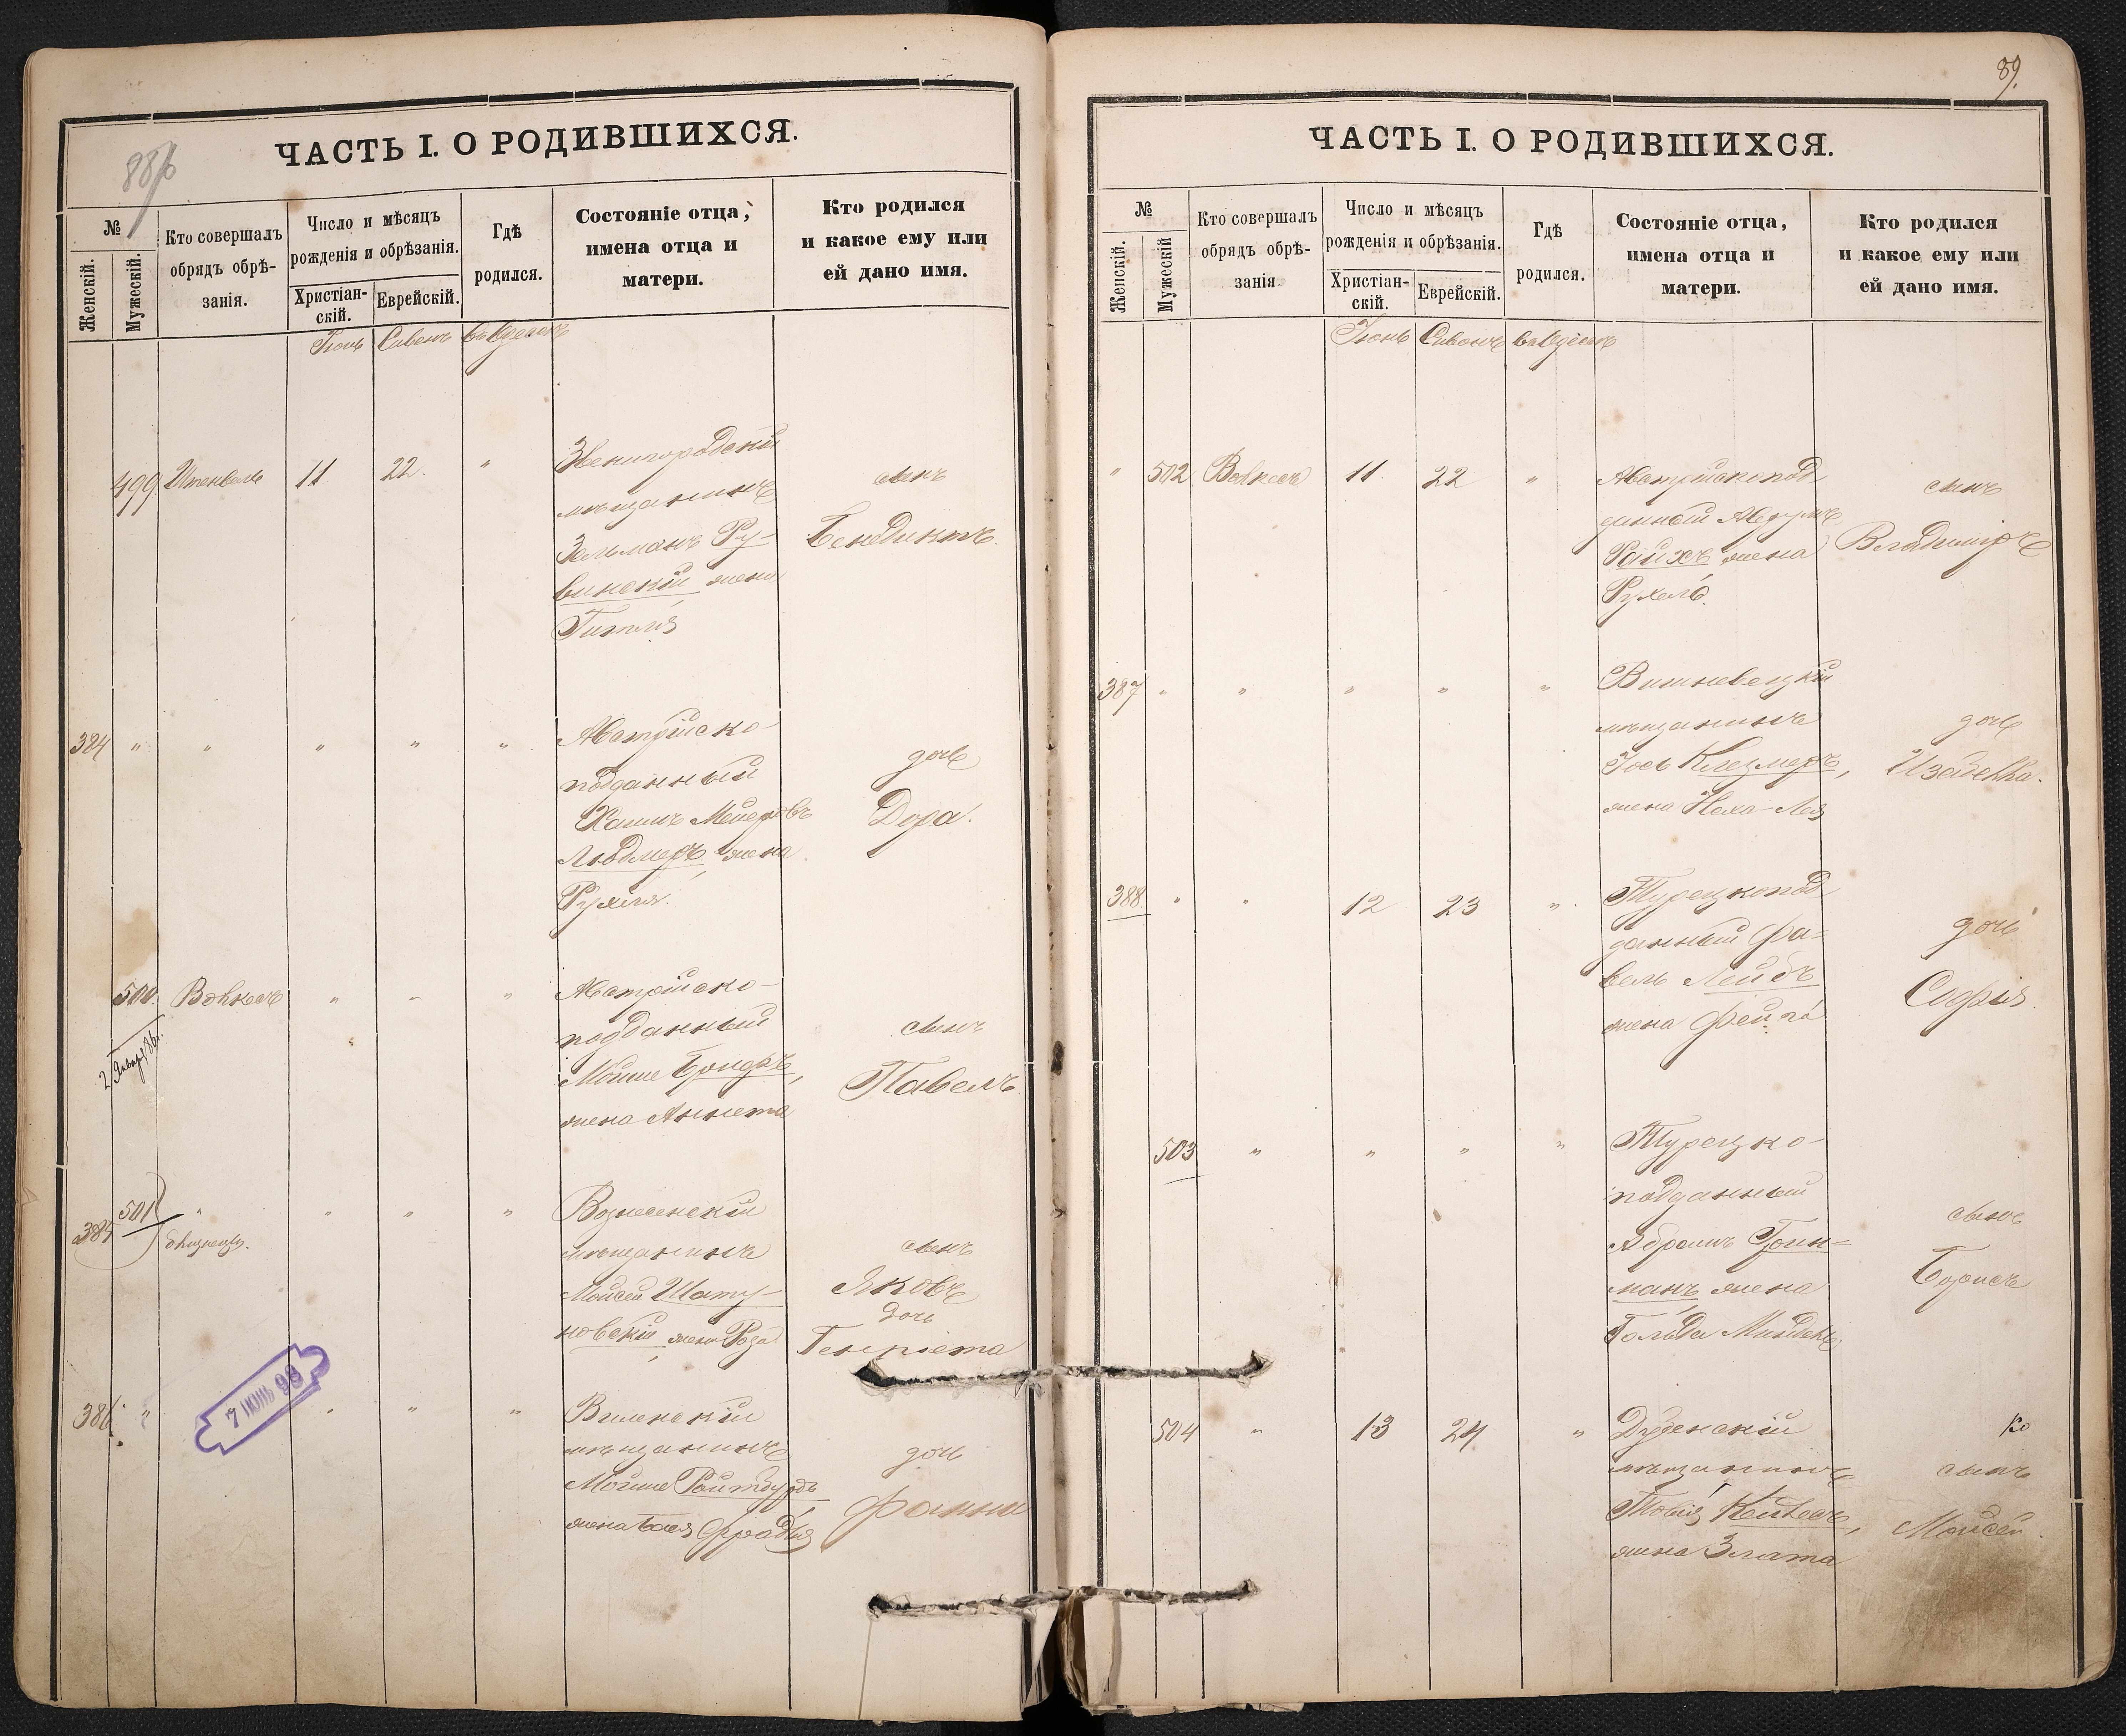 88/б
ЧАСТЬ I. О РОДИВШИХСЯ.
№
Женскій.
Мужескій.
Кто совершалъ
обрядъ обрѣ-
занія.
Число и мѣсяцъ
рожденія и обрѣзанія.
Христіан-
скій.
Еврейскій.
Гдѣ
родился.
Состояніе отца,
имена отца и
матери.
Кто родился
и какое ему или
ей дано имя.
Іюнь Сивонъ въ Одессѣ
499 11 22. "
Звенигородскій
мѣщанинъ
Зельманъ Ру-
винскій жена
Гитля
сынъ
Бенедиктъ.
384 " " " " "
Австрійско-
подданный
Хаимъ Мееровъ
Людмеръ, жена
Рухля.
дочь
Дора.
500. Вовкесъ " " "
2 Января 86г.
Австрійско-
подданный
Мойше Брперъ,
жена Аннета
сынъ
Павелъ
501 385 " " " "
близнецы.
Вознесенскій
мѣщанинъ
Мойсей Шату-
новскій, жена Роза
сынъ
Яковъ
дочь
Генріета
386. " " " "
7 ІЮНЬ 98
Виленскій
мѣщанинъ
Мойше Ройтбурдъ,
жена Бася Фрадья
дочь
Фанни
89.
ЧАСТЬ I. О РОДИВШИХСЯ.
№
Женскій.
Мужескій
Кто совершалъ
обрядъ обрѣ-
занія.
Число и мѣсяцъ
рожденія и обрѣзанія.
Христіан-
скій.
Еврейскій.
Гдѣ
родился.
Состояніе отца,
имена отца и
матери.
Кто родился
и какое ему или
ей дано имя.
Іюнь Сивонъ въ Одессѣ
" 502 Вовкесъ 11 22 "
Австрійскопод
данный
Райхъ жена
Рухель.
сынъ
Владиміръ
387 " " " " "
Вишневецкій
мѣщанинъ
Іось Клезмеръ,
жена Неха-Лея
дочь
Изабелла.
388 " " 12 23 "
Турецкопод
данный Фа-
вель Лейбъ
жена Фейга
дочь
Софья.
503 " " " "
Турецко-
подданный
Абрамъ Грин-
манъ, жена
Гольда Миндель
сынъ
Борисъ
504 " 13 24 "
Дубенскій
мѣщанинъ
Товій Кейвесъ,
жена Злата
Ко
сынъ
Мойсей.